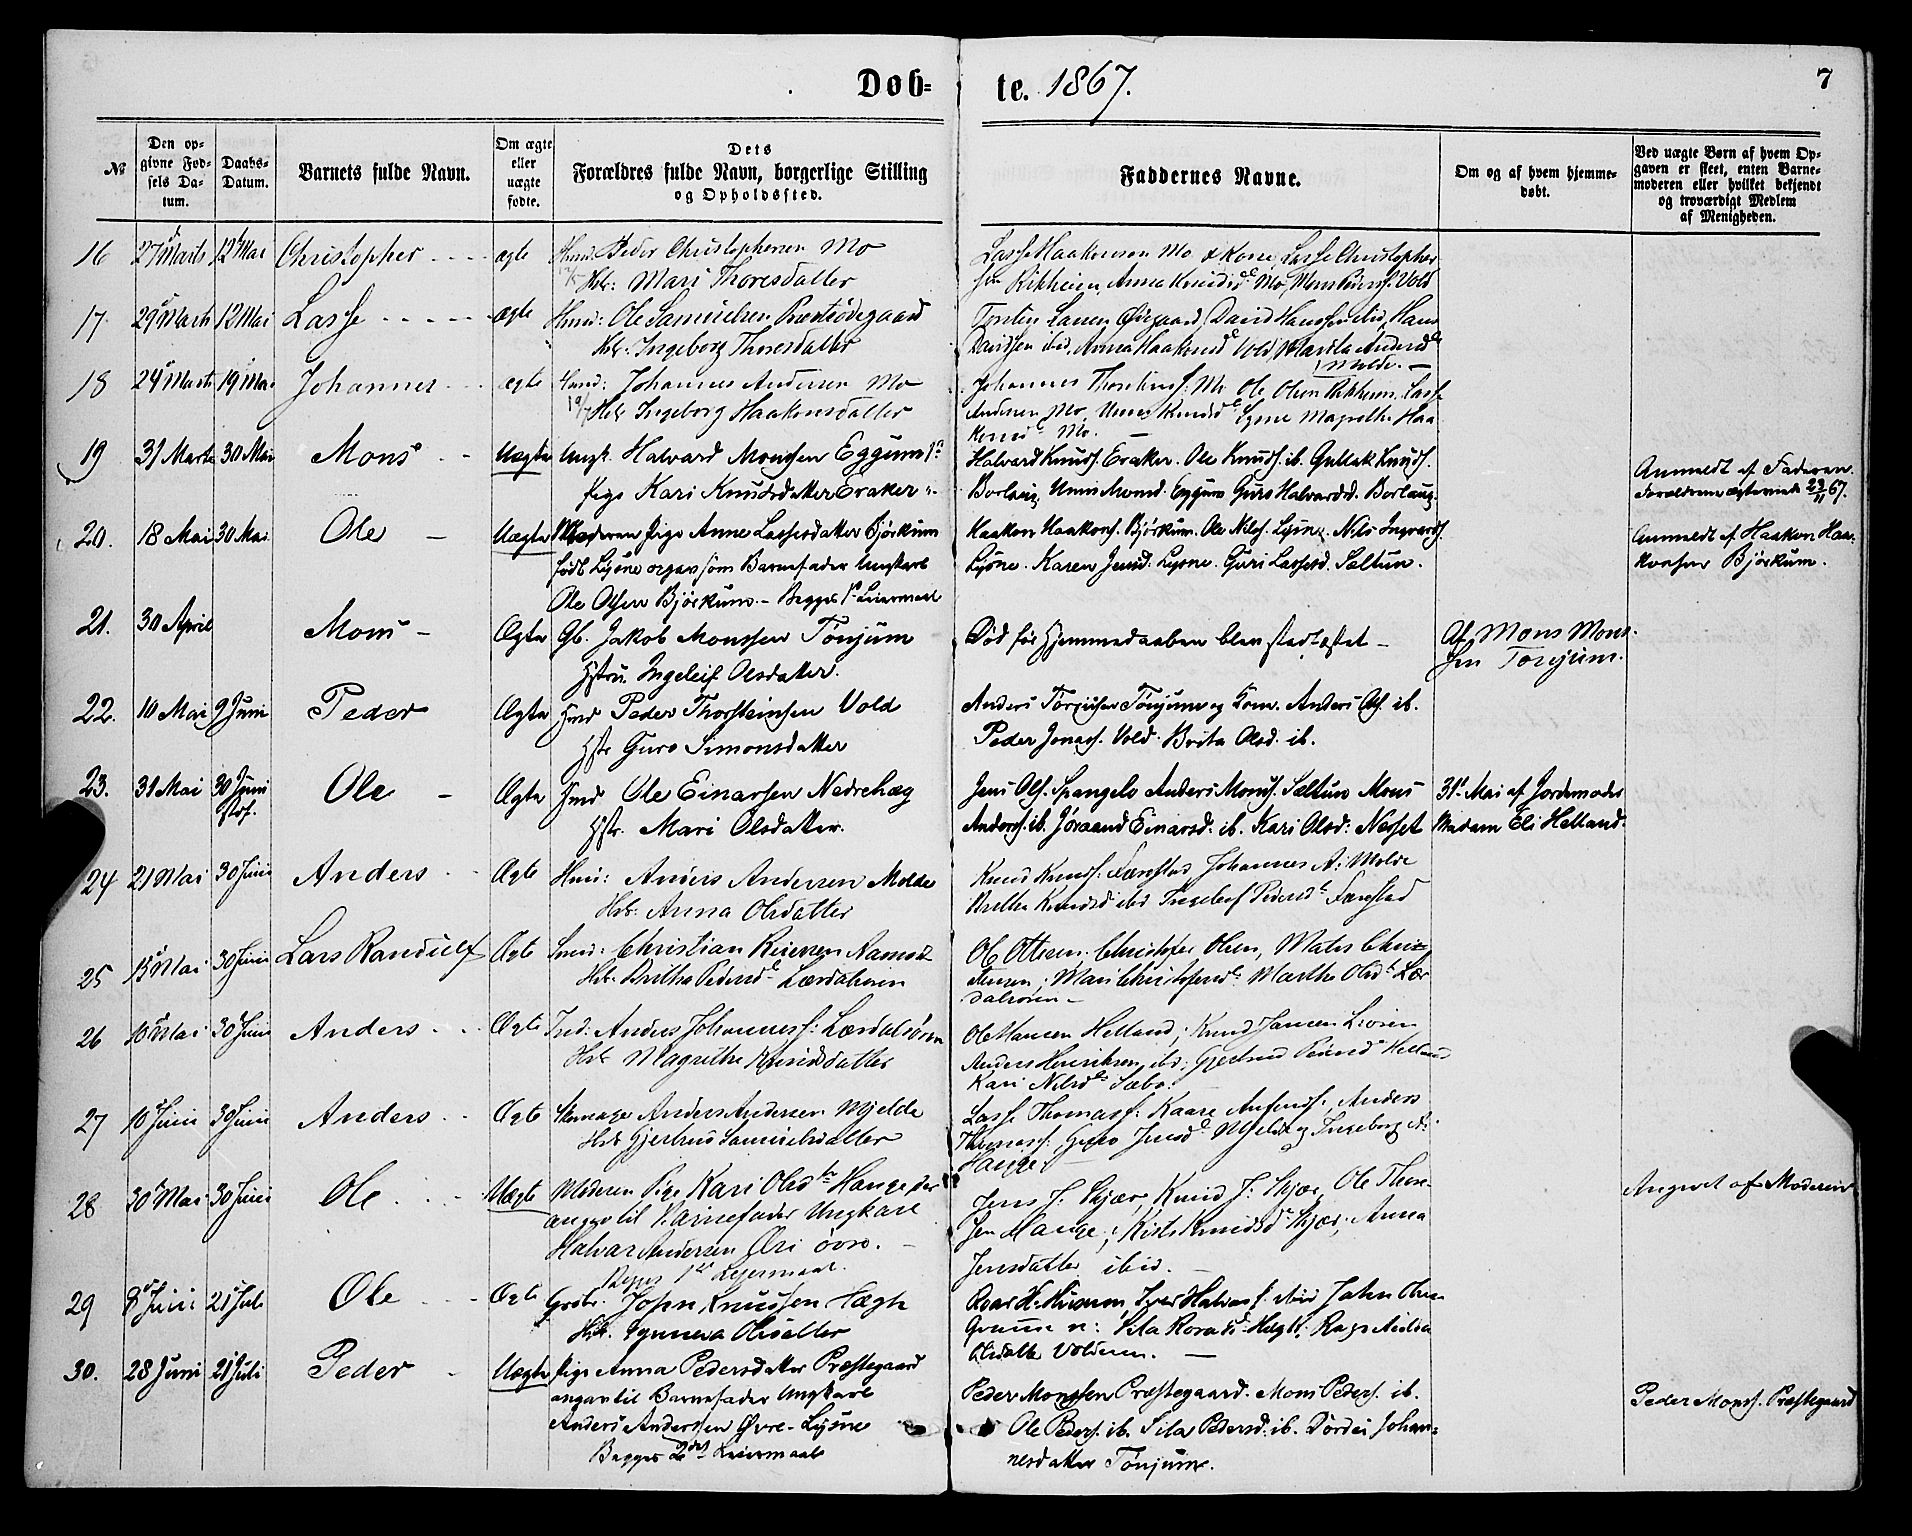 Døb=
te. 1867.
7
№
Den op-
givne Fød-
sels Da-
tum.
Daabs-
Datum.
Barnets fulde Navn.
Om ægte
eller
uægte
fødte.
Dets
Forældres fulde Navn, borgerlige Stilling
og Opholdssted.
Faddernes Navne.
Om og af hvem hjemme-
døbt.
Ved uægte Børn af hvem Op-
gaven er skeet, enten Barne-
moderen eller hvilket bekjendt
og troværdigt Medlem
af Menigheden.
16 27 Marts 12 Mai Christopher ægte Peder Christophersen Mo
Mari Thoresdatter
Lasse Haakonsen Mo & Kone, Lasse Christopher
sen Anna Knudsd Mo, Mons Vold
17. 29 Marts 12 Mai Lasse ægte Hmd: Ole Samuelsen
Hst: Ingeborg Thoresdatter
Larsen Øigaard, David Hansen ibid, Hans
Davidsen ibid, Anna Haakonsd Vold, Andersd
Molde.
18 24 Marts 19 Mai Johannes ægte Hmd: Johannes Andersen Mo
Hst: Ingeborg Haakonsdatter
Johannes Mo Ole Olsen Lasse
Andersen Mo, Knudsd Synne Magrethe Haa-
konsd Mo.
19 31 Marts 30 Mai Mons Uægte Ungk. Halvard Monsen Eggum
Pige Kari Knudsdatter Eraker
Halvard Knuds. Eraker. Ole Knuds. ib. Gullak Knuds.
Borlaug, Unni Eggum Guro Halvardsd. Borlaug.
Anmeldt af Faderen.
Forældrene ægteviede 23/11 67.
20. 18 Mai 30 Mai Ole Uægte Moderen Pige Anne Lassesdatter Bjørkum
født Lysne opgav som Barnefader Ungkarl
Ole Olsen Bjørkum. - Begges 1ste Leiermaal
Haakon Haakons. Bjørkum. Ole Nils. Lysne. Nils Ingvards.
Lysne. Karen Jensd. Lysne. Guri Lassesd. Saltun.
Anmeldt af Haakon Haa-
konsen Bjørkum.
21. 30 April Mons Ægte Gb. Jakob Monssen Tønjum
Hstru. Ingeleif Olsdatter.
Død før Hjemmedaaben blev stadfæstet
Af Mons Mons-
sen Tønjum.
22. 10 Mai 9 Juni Peder Ægte Hmd Peder Thorsteinsen Vold
Hstr Guro Simonsdatter
Anders Tønjum og Kone. Anders Ols. ib.
Peder Jonas. Vold. Brita Olsd. ib.
23. 31 Mai 30 Juni
Ole Ægte Hmd Ole Einarsen Nedrehæg
Hstr. Mari Olsdatter.
Jens Ols. Spangelo Anders Mons. Saltun Mons
Anders. ib. Jøraand Einarsd. ib. Kari Olsd: Nesset
31. Mai af Jordemoder
Madam Eli Helland.
24 21 Mai 30 Juni Anders Ægte Hmd: Anders Andersen Molde
Hst: Anna Olsdatter
Knud Knuds. Færestad Johannes A. Molde
Brithe Knudsd ibd Ingeleif Pedersd Færestad
25 15 Mai 30 Juni Lars Randulf Ægte Christian
Hst: Brithe Pedersd Lærdalsøren
Ole Ottesen, Christofer Olsen, Mats Chri-
stensen; Mari Christofersd Marthe Olsd Lær
dalsøren
26 10 Mai 30 Juni Anders Ægte Anders Johanness: Lærdalsøren
Hst Magrethe Knudsdatter
Ole Hansen Helland; Knud Jansen
Anders Henriksen ibd; Gjertrud Helland
Kari Nilsd Sæbø.
27 10 Juni 30 Juni Anders Ægte Anders Andersen Mjelde
Hst Gjertrud Samuelsdatter
Lasse Thomass: Kaare Anfinds. Anders
Thomass. Guro Jensd Mjelde og Ingeborg
Hauge.
28 30 Mai 30 Juni Ole Uægte Moderen Pige Kari Olsd Hauge, der
angav til Barnefader Ungkarl
Halvar Andersen Øri øvre.
Begges 1ste Leiermaal.
Jens J. Skjær, Knud J. Skjær, Ole Thor-
sen Hauge; Knudsd Skjær; Anna
Jensdatter ibid.
Angivet af Moderen
29 8 Juni 21 Juli Ole Ægte Gmbr. John Knudsen Hægh
Hst. Synneva Olsdatter
Iver Halvors. ibid John Olsen
Sila Hægh.
Olsdatter Volderen.
30. 28 Juni 21 Juli Peder Uægte Pige Anna Pedersdatter Præstegaard
angav til Barnefader Ungkarl
Anders Anderssen Øvre-Lysne
Begges 2det Leiermaal
Peder Monssen Præstegaard. Mons Peders. ib.
Ole Peders. ib. Sila Pedersd. ib. Dordei Johan-
nesdatter Tønjum.
Peder Mons. Præstegaard